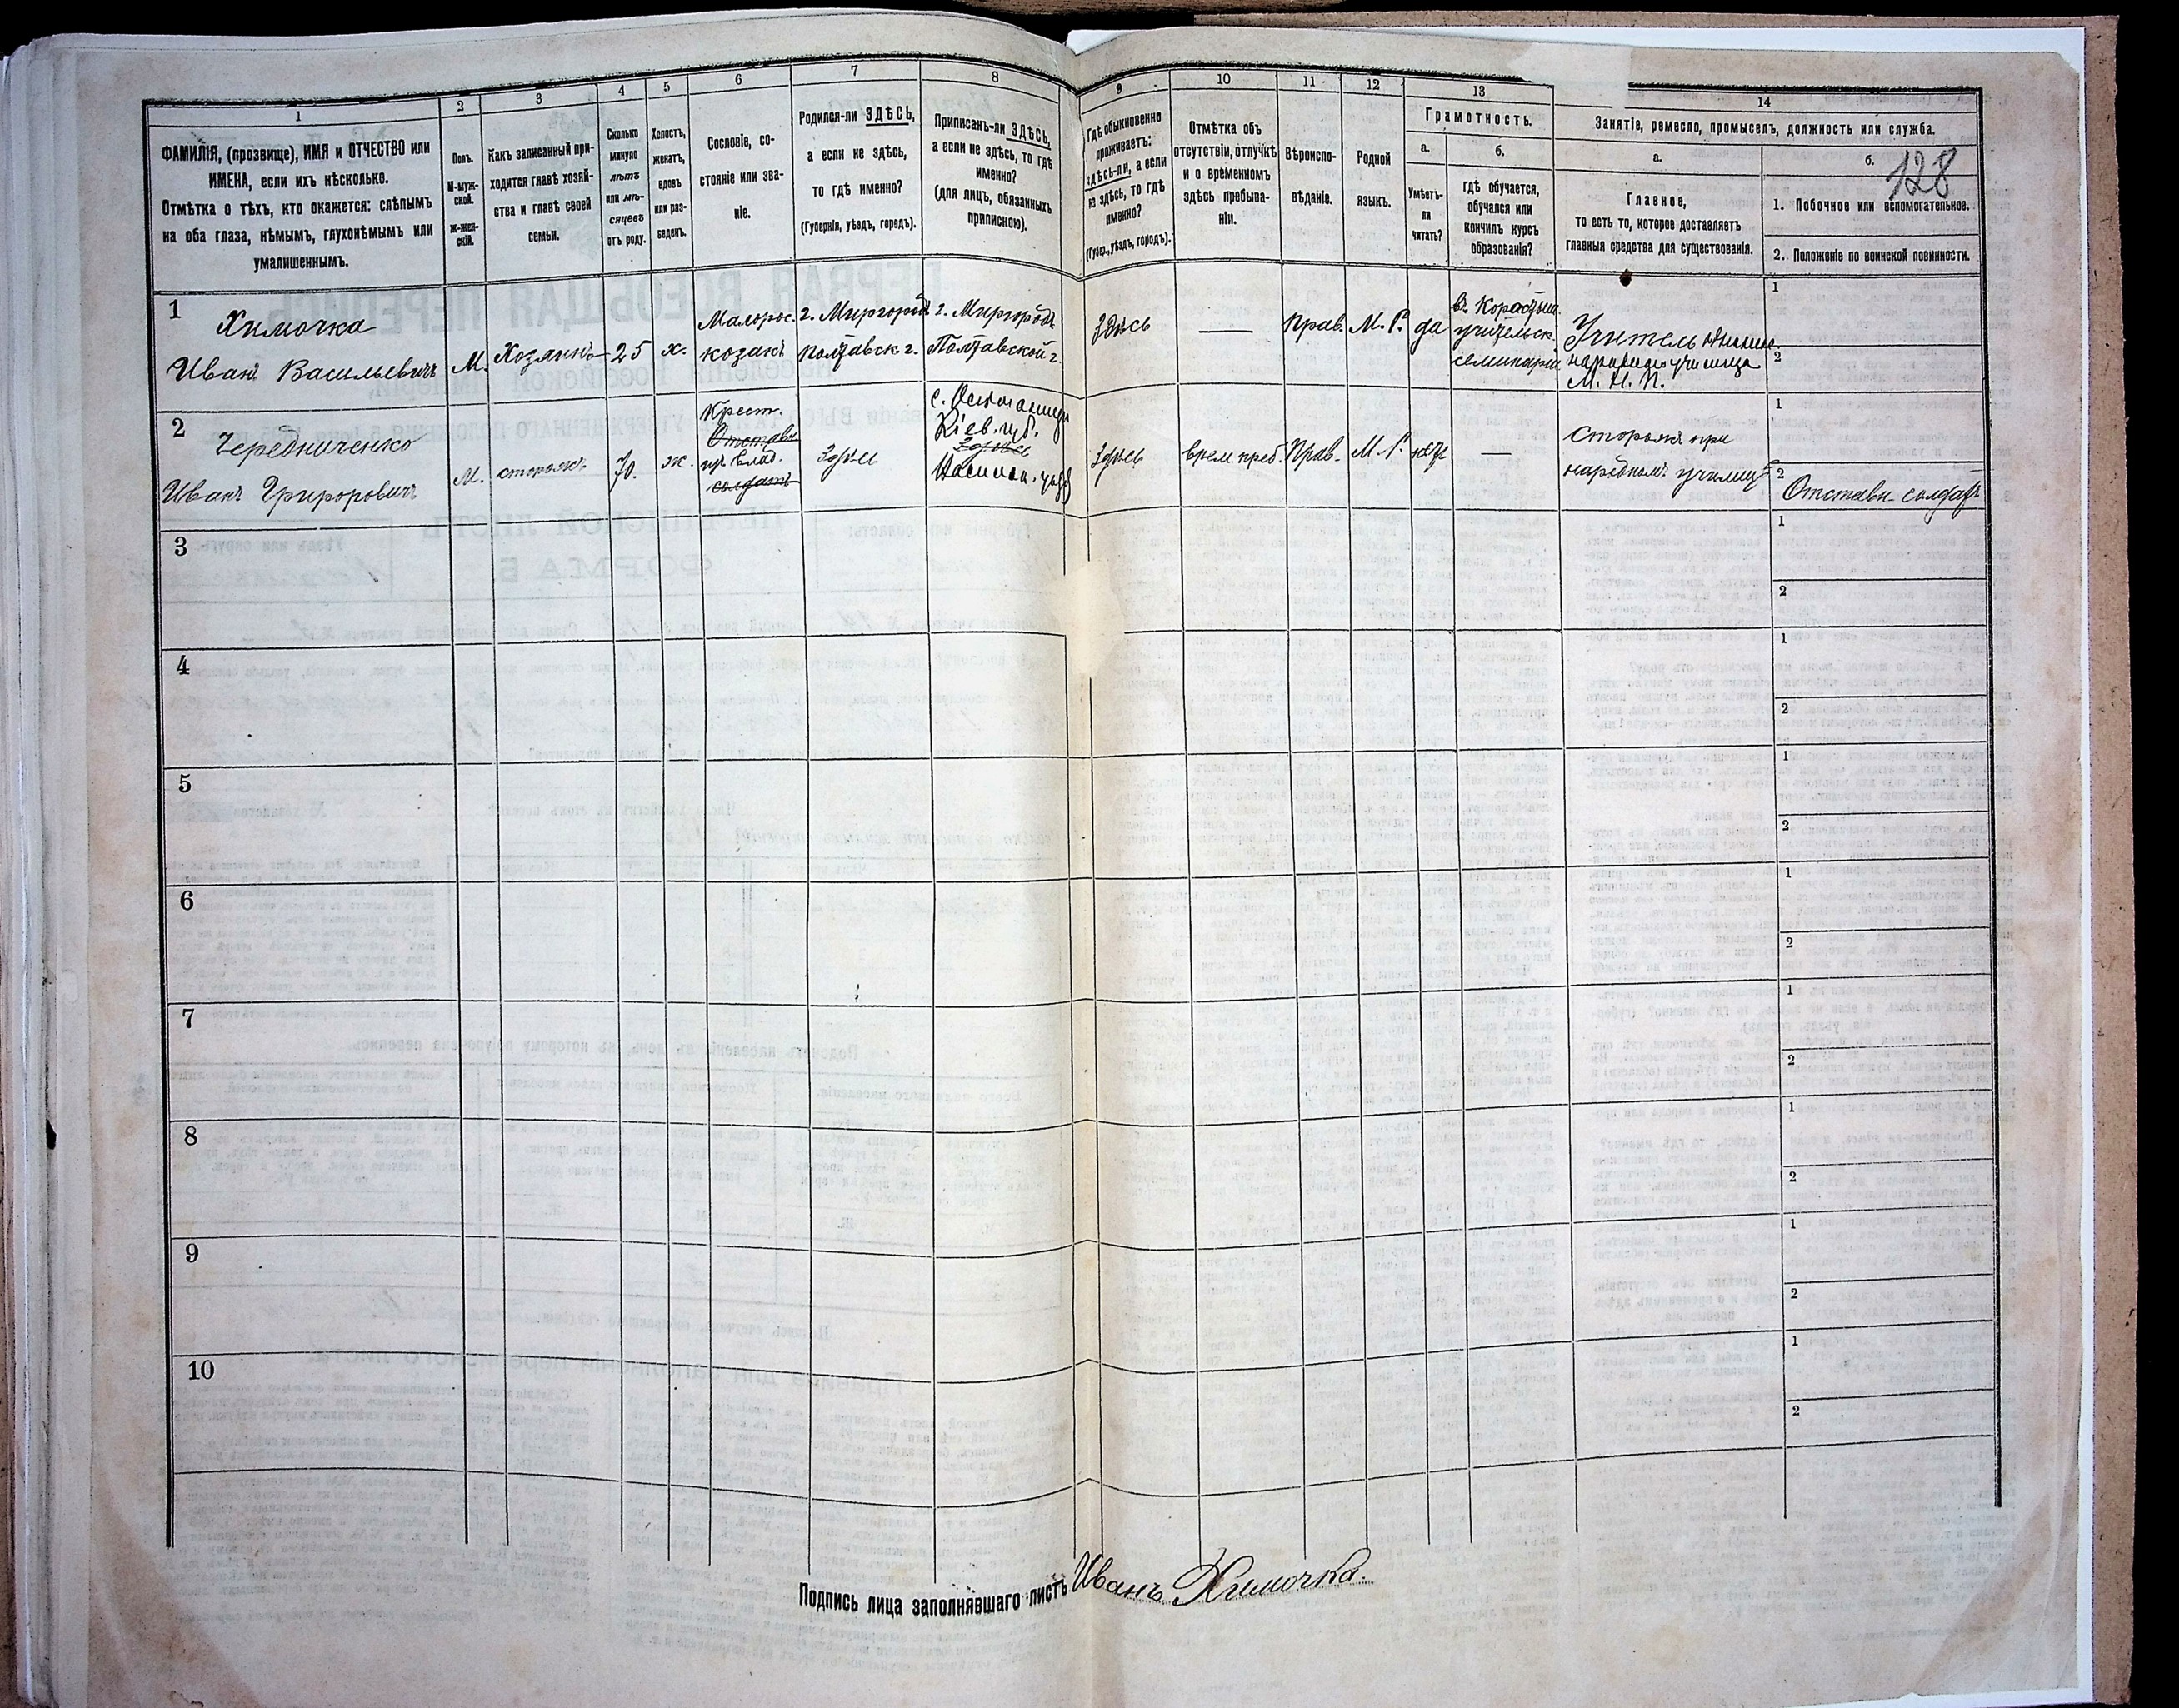 1
2
3
4
5
6
7
8
9
10
11
12
13
14
ФАМИЛІЯ, (прозвище), ИМЯ и ОТЧЕСТВО или
ИМЕНА, если ихъ нѣсколько.
Отмѣтка о тѣхъ, кто окажется: слѣпымъ
на оба глаза, нѣмымъ, глухонѣмымъ или
умалишеннымъ.
Полъ.
М-муж-
ской.
Ж-жен-
скій.
Какъ записанный при-
ходится главѣ хозяй-
ства и главѣ своей
семьи.
Сколько
минуло
лѣтъ
или мѣ-
сяцевъ
отъ роду.
Холостъ,
женатъ,
вдовъ
или раз-
веденъ.
Сословіе, со-
стояніе или зва-
ніе.
Родился-ли ЗДѢСЬ,
а если не здѣсь,
то гдѣ именно?
(Губернія, уѣздъ, городъ).
Приписанъ-ли ЗДѢСЬ,
а если не здѣсь, то гдѣ
именно?
(для лицъ, обязанныхъ
припискою).
Гдѣ обыкновенно
проживаетъ:
здѣсь-ли, а если
не здѣсь, то гдѣ
именно?
(Губер., уѣздъ, городъ).
Отмѣтка объ
отсутствіи, отлучкѣ
и о временномъ
здѣсь пребыва-
ніи.
Вѣроиспо-
вѣданіе.
Родной
языкъ.
Грамотность.
а.
б.
Умѣетъ-
ли
читать?
гдѣ обучается,
обучался или
кончилъ курсъ
образованія?
Занятіе, ремесло, промыселъ, должность или служба.
а.
б.
128
Главное,
то есть то, которое доставляетъ
главныя средства для существованія.
1. Побочное или вспомогательное.
2. Положеніе по воинской повинности.
1
Химочка
Иванъ Васильевичъ
М.
Хозяинъ
25
х.
Малорос.
козакъ
г. Миргородъ
Полтавск. г.
г. Миргородъ
Полтавской г.
Здѣсь
—
Прав.
М. Р.
да
учительск.
семинаріи
Учитель
народнаго училища
М. Н. П.
1
2
2
Чередниченко
Иванъ Григоровичъ
М.
сторожъ
70.
ж.
Крест.
Отставн
пр. влад.
солдатъ
Здѣсь
Кіев. губ.
Здѣсь
Здѣсь
врем. преб.
Прав.
М. Р.
нѣтъ
—
Сторожъ при
народномъ училищѣ
1
2
Отставн. солдатъ
3
1
2
4
1
2
5
1
2
6
1
2
7
1
2
8
1
2
9
1
2
10
1
2
Подпись лица заполнявшаго листъ Иванъ Химочка.